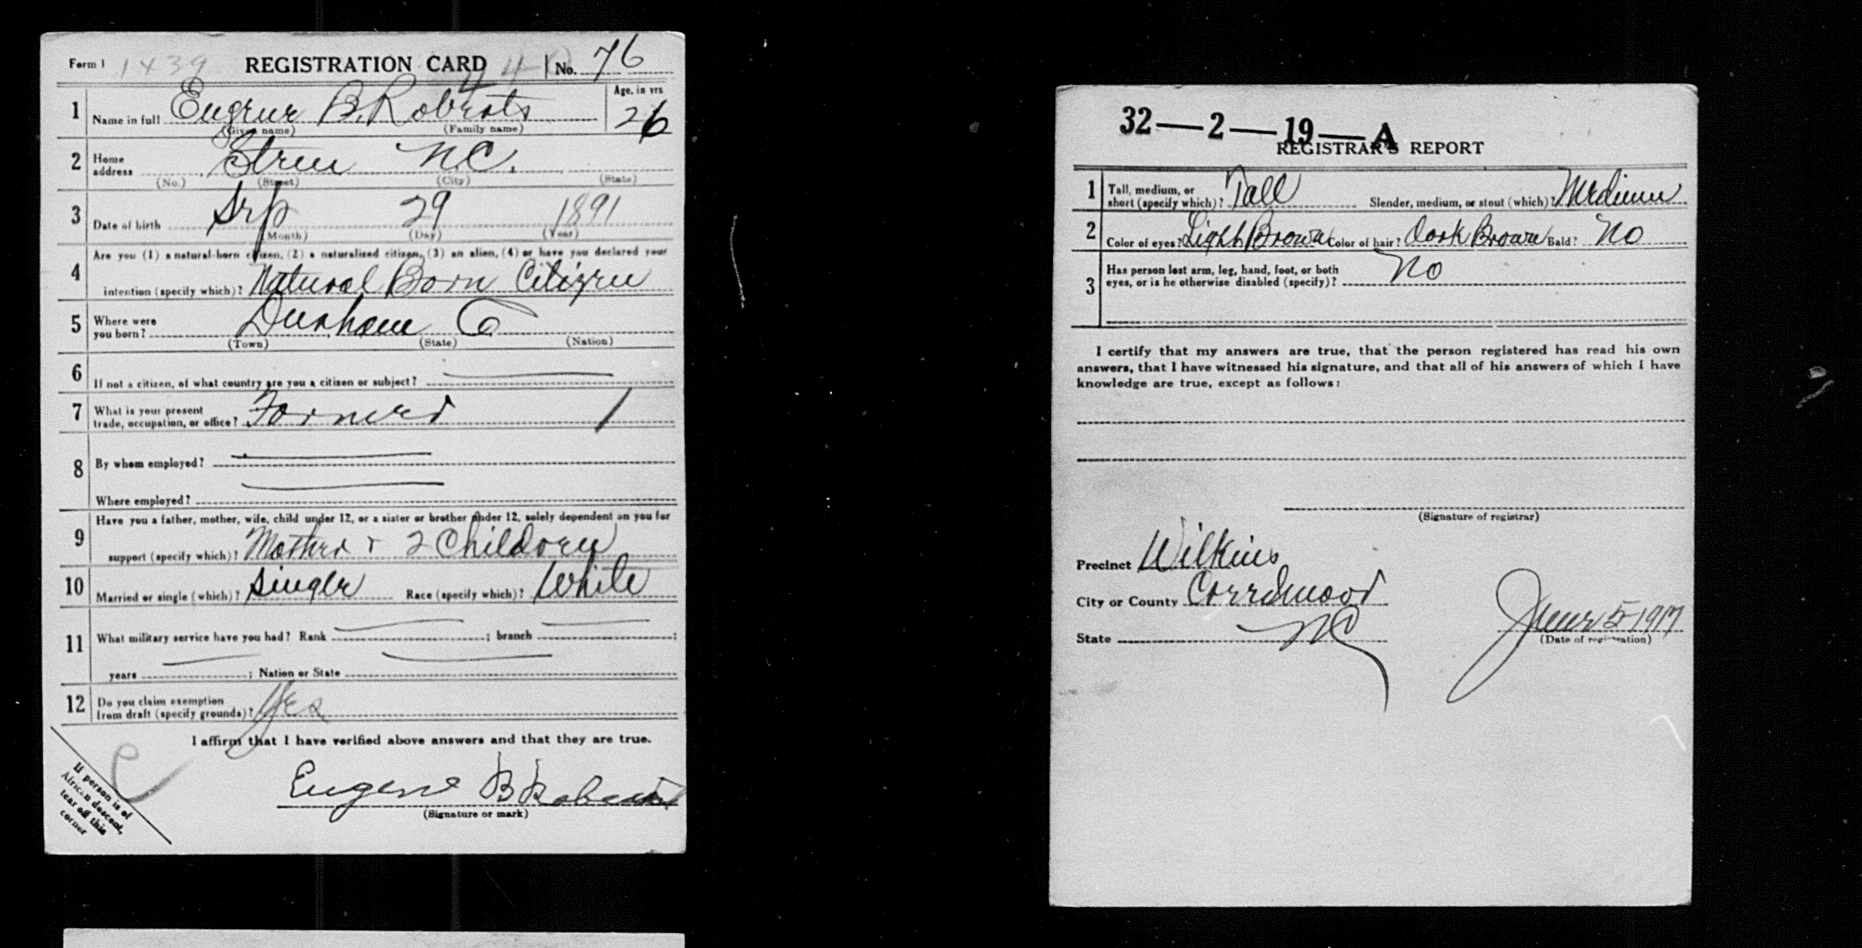 Form 1 1439 REGISTRATION CARD No. 76
1 Name in full Eugene B. Roberts Age, in yrs 26
(Given name) (Family name)
2 Home address Stem NC.
(No.) (Street) (City) (State)
3 Date of birth Sep 29 1891
(Month) (Day) (Year)
4 Are you (1) a natural-born citizen, (2) a naturalized citizen, (3) an alien, (4) or have you declared your
intention (specify which)? Natural Born Citizen
5 Where were you born? Durham Co
(Town) (State) (Nation)
6 If not a citizen, of what country are you a citizen or subject?
7 What is your present
trade, occupation, or office? Farmer
8 By whom employed?
Where employed?
9 Have you a father, mother, wife, child under 12, or a sister or brother under 12, solely dependent on you for
support (specify which)? Mother + 2 Children
10 Married or single (which)? Single Race (specify which)? White
11 What military service have you had? Rank ; branch ;
years ; Nation or State
12 Do you claim exemption
from draft (specify grounds)? Yes
I affirm that I have verified above answers and that they are true.
Eugene B Roberts
(Signature or mark)
If person is of
African descent,
tear off this
corner
32—2—19—A
REGISTRAR'S REPORT
1 Tall, medium, or
short (specify which)? Tall Slender, medium, or stout (which)? Medium
2 Color of eyes? Light Brown Color of hair? Dark Brown Bald? No
3 Has person lost arm, leg, hand, foot, or both
eyes, or is he otherwise disabled (specify)? No
I certify that my answers are true, that the person registered has read his own
answers, that I have witnessed his signature, and that all of his answers of which I have
knowledge are true, except as follows:
(Signature of registrar)
Precinct Wilkins
City or County Creedmoor
State NC
June 5 1917
(Date of registration)